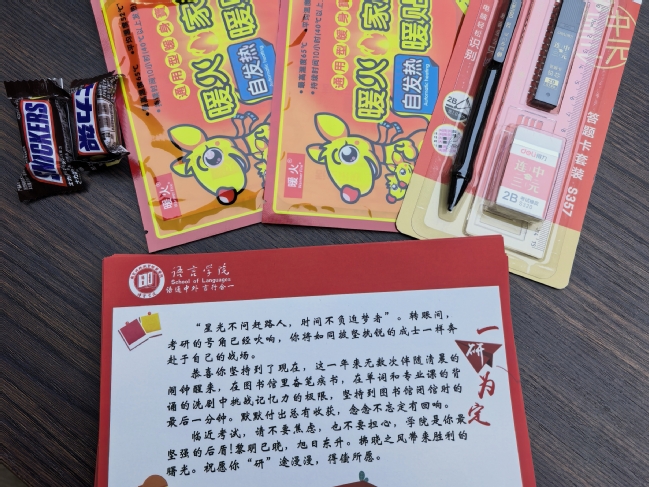 SNICKERS
士力架
通用型暖身貼
暖火
家
暖贴
自发热
Automatically heating
暖火
通用型暖身貼
暖火
家
暖贴
自发热
Automatically heating
暖火
连中
三元
2B
2B
答题卡套装 S357
语言学院
School of Languages
语通中外 言行合一
“星光不问赶路人，时间不负追梦者”。转眼间，
考研的号角已经吹响，你将如同披坚执锐的战士一样奔
赴于自己的战场。
恭喜你坚持到了现在，这一年来无数次伴随清晨的
闹钟醒来，在图书馆里奋笔疾书，在单词和专业课的背
诵的洗刷中挑战记忆力的极限，坚持到图书馆闭馆时的
最后一分钟。默默付出总有收获，念念不忘定有回响。
临近考试，请不要焦虑，也不要担心，学院是你最
坚强的后盾!黎明已晓，旭日东升。拂晓之风带来胜利的
曙光。祝愿你“研”途漫漫，得偿所愿。
一研为定